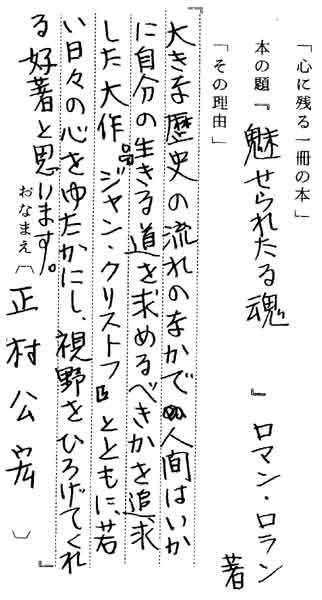 「心に残る一冊の本」
本の題『魅せられたる魂』ロマン・ロラン著
「その理由」
『大きな歴史の流れのなかで人間はいか
に自分の生きる道を求めるべきかを追求
した大作。『ジャン・クリストフ』とともに、若
い日々の心をゆたかにし、視野をひろげてくれ
る好著と思います。』
おなまえ〔正村公宏〕